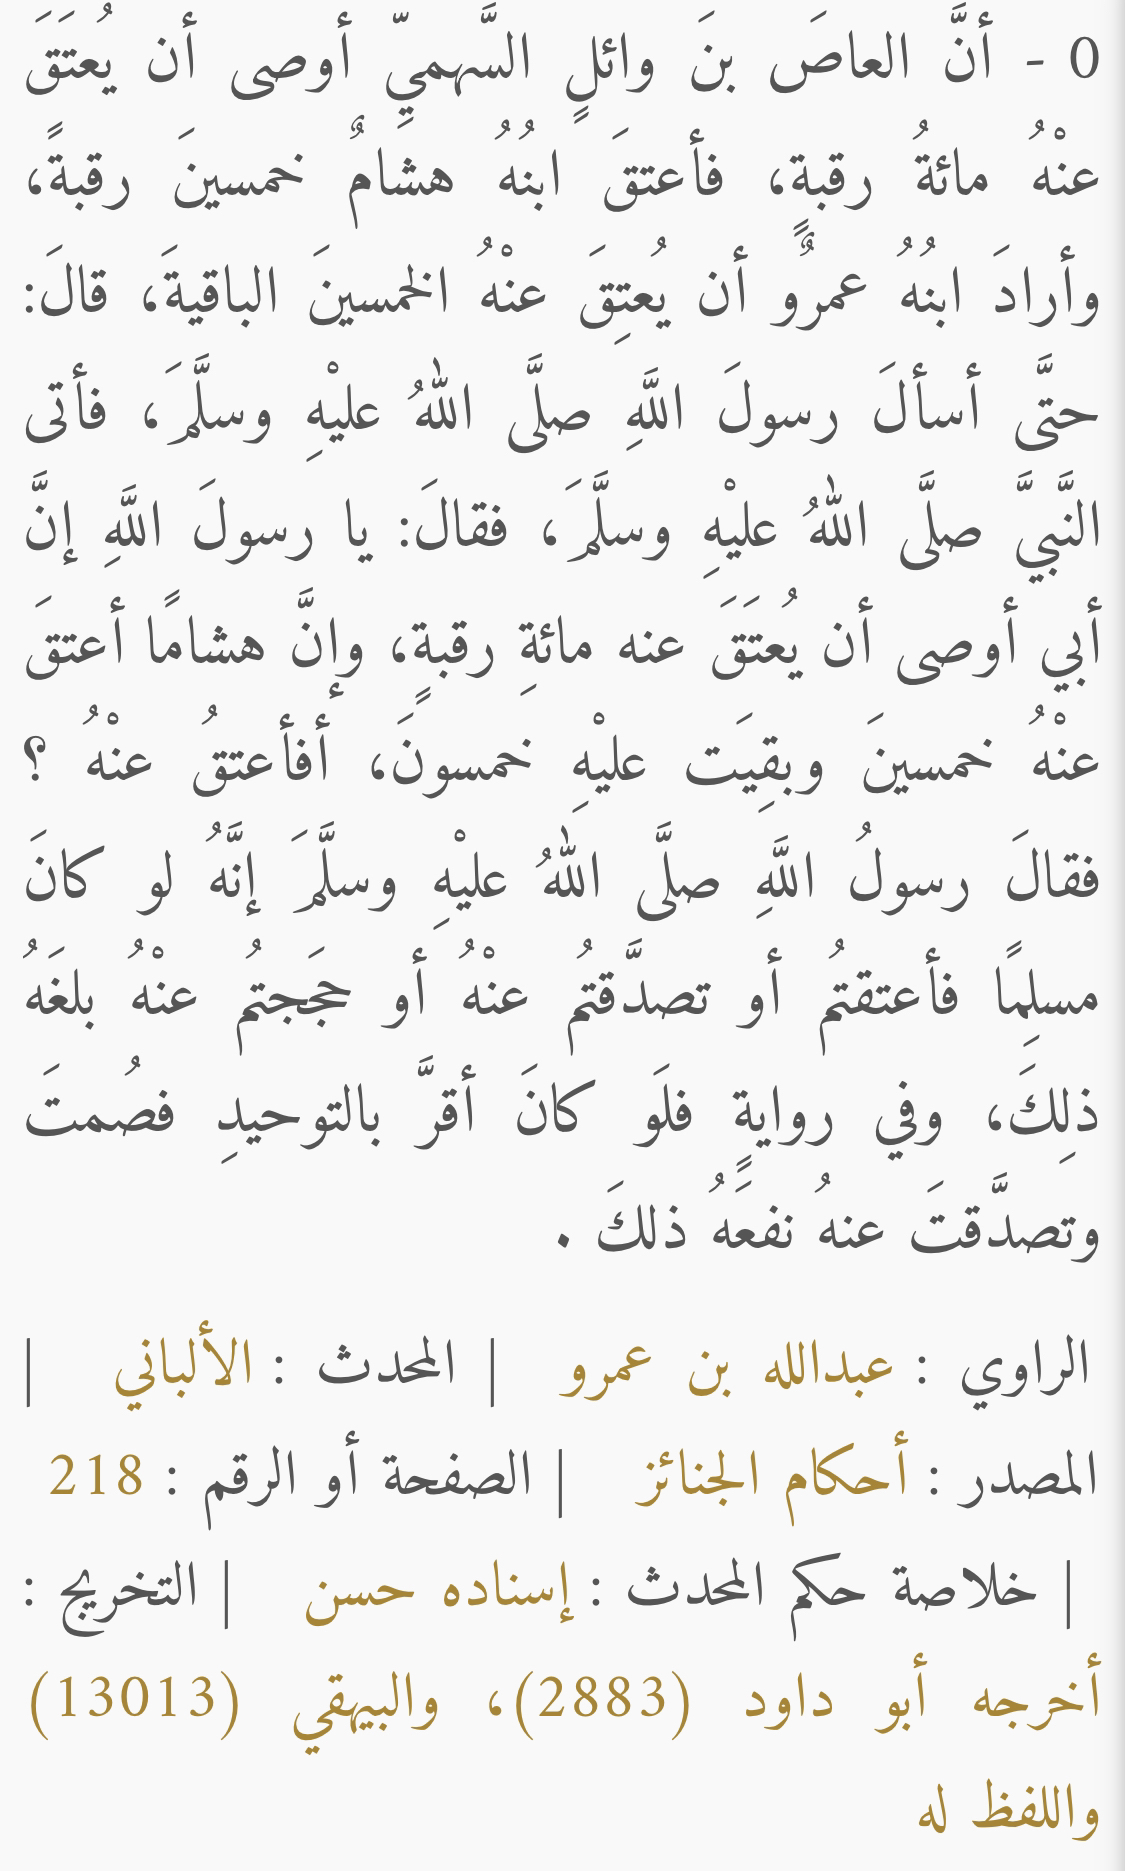 0 - أنَّ العاصَ بنَ وائلٍ السَّهميّ أوصى أن يُعتَقَ
عنْهُ مائةُ رقبةٍ، فأعتقَ ابنُهُ هشامٌ خمسينَ رقبةً،
وأرادَ ابنُهُ عمرٌو أن يُعتِقَ عنْهُ الخمسينَ الباقيةَ، قالَ:
حتَّى أسألَ رسولَ اللَّهِ صلَّى اللهُ عليْهِ وسلَّمَ، فأتى
النَّبيَّ صلَّى اللهُ عليْهِ وسلَّمَ، فقالَ: يا رسولَ اللَّهِ إنَّ
أبي أوصى أن يُعتَقَ عنه مائةِ رقبةٍ، وإنَّ هشامًا أعتقَ
عنْهُ خمسينَ وبقِيَت عليْهِ خمسونَ، أفأعتقُ عنْهُ ؟
فقالَ رسولُ اللَّهِ صلَّى اللهُ عليْهِ وسلَّمَ إنَّهُ لو كانَ
مسلِمًا فأعتقتُم أو تصدَّقتُم عنْهُ أو حجَجتُم عنْهُ بلغَهُ
ذلِكَ، وفي روايةٍ فلَو كانَ أقرَّ بالتوحيدِ فصُمتَ
وتصدَّقتَ عنهُ نفعَهُ ذلكَ .
الراوي : عبدالله بن عمرو | المحدث : الألباني |
المصدر : أحكام الجنائز | الصفحة أو الرقم : 218
| خلاصة حكم المحدث : إسناده حسن | التخريج :
أخرجه أبو داود (2883)، والبيهقي (13013)
واللفظ له